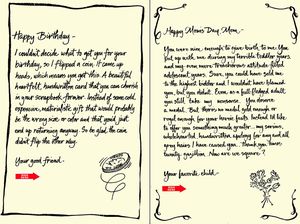 Happy Birthday -
I couldn't decide what to get you for your
birthday, so I flipped a coin. It came up
heads, which means you get this: A beautiful
heartfelt, handwritten card that you can cherish
in your scrapbook forever. Instead of some cold,
expensive, materialistic gift that would probably
be the wrong size or color and that you'd just
end up returning anyway. So be glad the coin
didn't flip the other way.
Your good friend -
Happy Mom's Day, Mom -
You were nice enough to give birth to me. You
put up with me during my terrible toddler years
and my even more attitude-filled
adolescent years. Sure, you could have sold me
to the highest bidder and I wouldn't have blamed
you, but you didn't. Even as a full-fledged adult
you still take my nonsense. You deserve
a medal. But there's no medal gold enough or
regal enough for your heroic feats. Instead I'd like
to offer you something much greater - my sincere,
wholehearted, handwritten apology for any and all
gray hairs I have caused you. Thank you times
twenty gazillion. Now are we square?
Your favorite child -